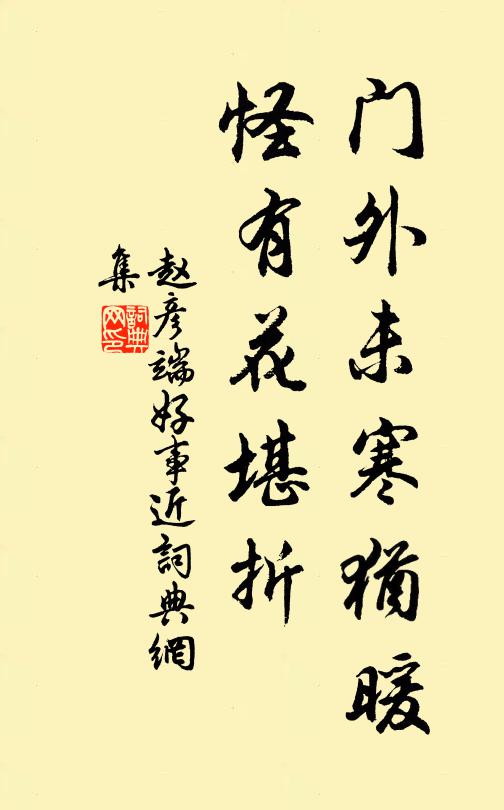 门外未寒犹暖
怪有花堪折
赵彦端好事近詞典網
集
詞典网印